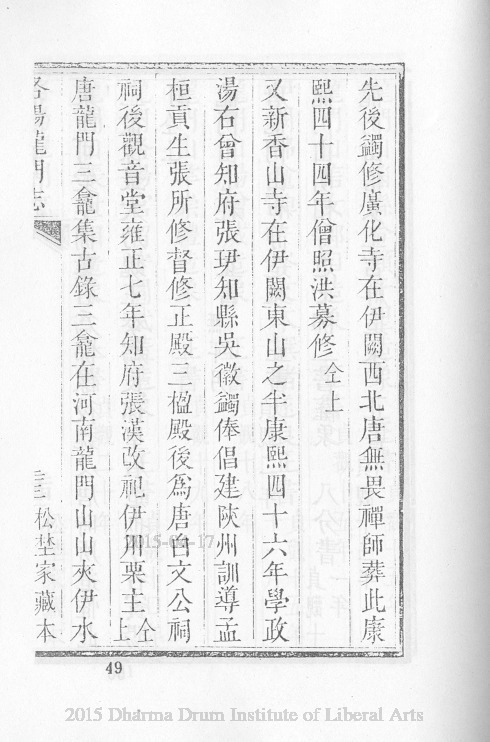 先後蠲修廣化寺在伊闕西北唐無畏禪師葬此康
熙四十四年僧照洪募修仝上
又新香山寺在伊闕東山之半康熙四十六年學政
湯右曾知府張玾知縣吳徽蠲俸倡建陝州訓導孟
桓貢生張所修督修正殿三楹殿後為唐白文公祠
祠後觀音堂雍正七年知府張漢改祀伊川栗主仝上
唐龍門三龕集古錄三龕在河南龍門山山夾伊水
洛陽龍門志
三
松埜家藏本
49
2015-03-17
2015 Dharma Drum Institute of Liberal Arts